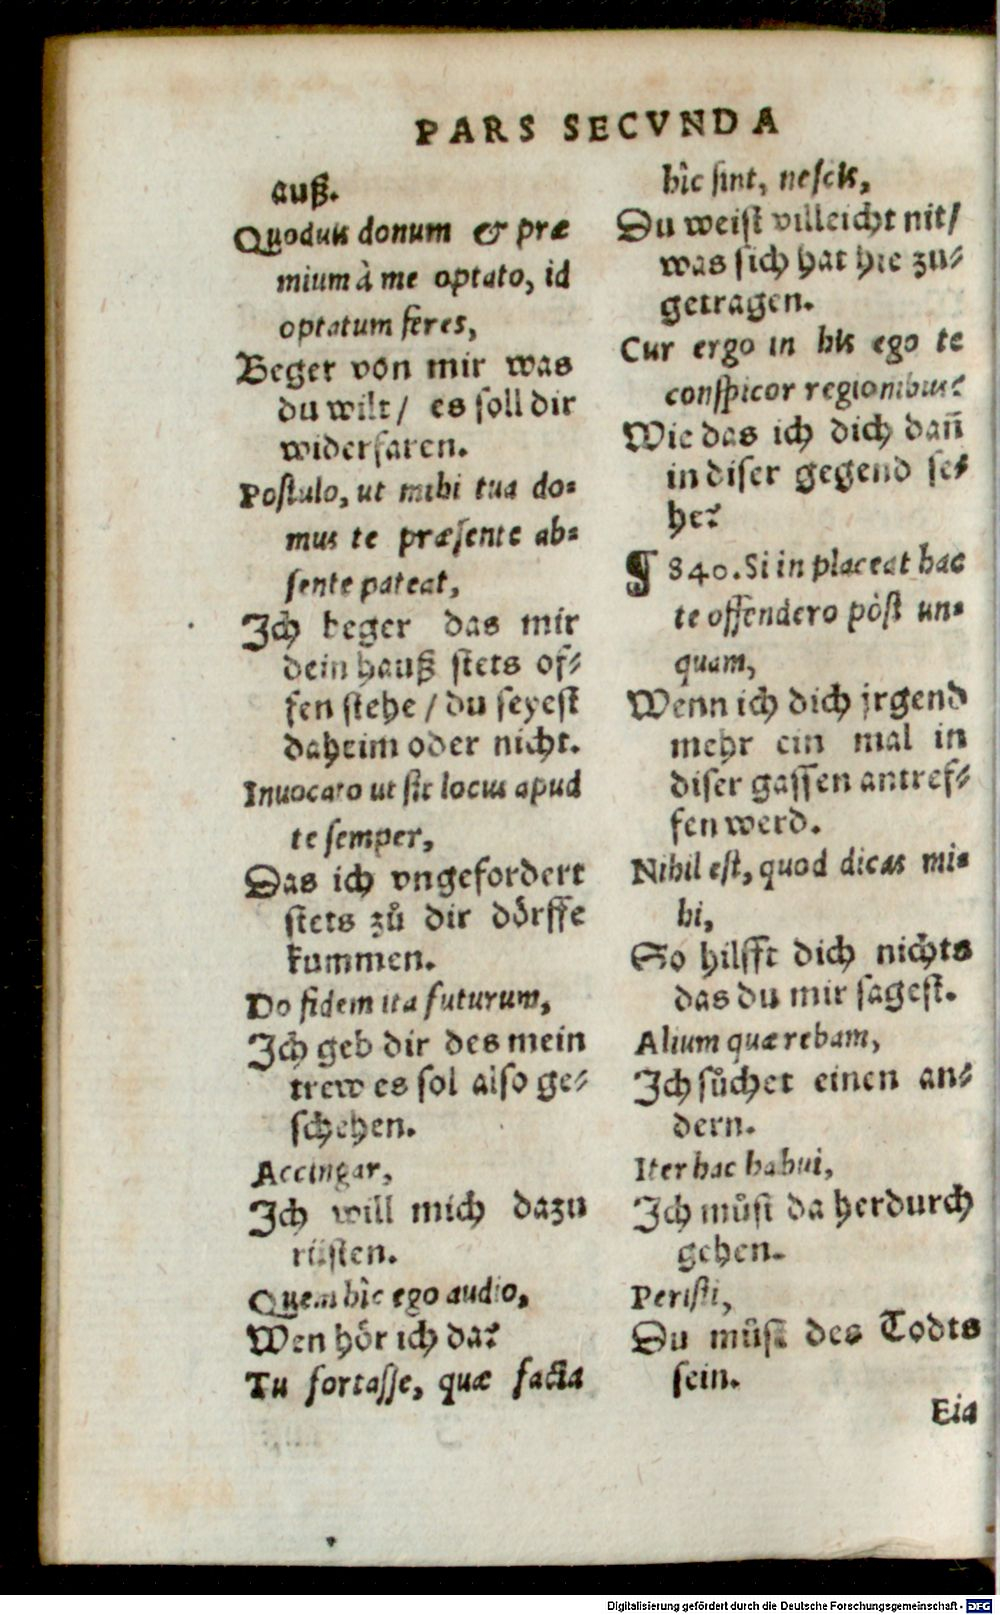 PARS SECVNDA
auß.
Quoduis donum & præ
mium à me optato, id
optatum feres,
Beger von mir was
du wilt / es soll dir
widerfaren.
Postulo, ut mihi tua do-
mus te præsente ab-
sente pateat,
Ich beger das mir
dein hauß stets of-
fen stehe / du seyest
daheim oder nicht.
Inuocato ut sit locus apud
te semper,
Das ich vngefordert
stets zů dir dörffe
kummen.
Do fidem ita futurum,
Ich geb dir des mein
trew es sol also ge-
schehen.
Accingar,
Ich will mich dazu
rüsten.
Quem hîc ego audio,
Wen hör ich da?
Tu fortasse, quæ facta
hîc sint, nescis,
Du weist villeicht nit/
was sich hat hie zu-
getragen.
Cur ergo in his ego te
conspicor regionibus?
Wie das ich dich dañ
in diser gegend se-
he?
¶ 840. Si in placeat hac
te offendero pòst un-
quam,
Wenn ich dich jrgend
mehr ein mal in
diser gassen antref-
fen werd.
Nihil est, quod dicas mi-
hi,
So hilfft dich nichts
das du mir sagest.
Alium quærebam,
Ich sůchet einen an-
dern.
Iter hac habui,
Ich můst da herdurch
gehen.
Peristi,
Du můst des Todts
sein.
Eia
Digitalisierung gefördert durch die Deutsche Forschungsgemeinschaft - DFG